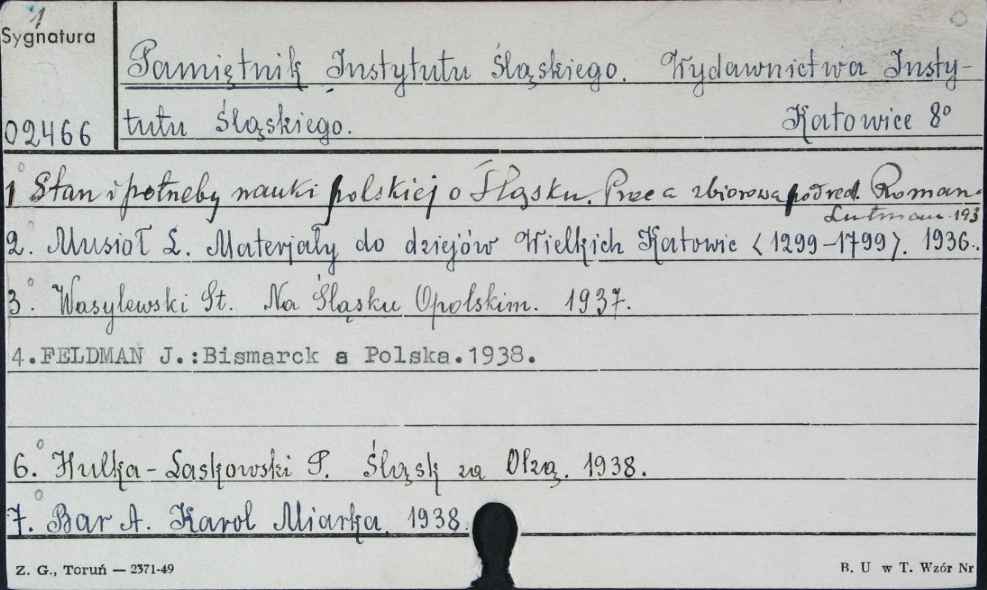 1
Sygnatura
Pamiętnik Instytutu Śląskiego. Wydawnictwa Insty-
02466
tutu Śląskiego. Katowice 8°
1° Stan i potrzeby nauki polskiej o Śląsku. Praca zbiorowa pod red. Roman.
Lutman. 193
2.° Musioł L. Materjały do dziejów Wielkich Katowic <1299-1799>. 1936.
3.° Wasylewski St. Na Śląsku Opolskim. 1937.
4.FELDMAN J.:Bismarck a Polska.1938.
6.° Hulka-Laskowski P. Śląsk za Olzą. 1938.
7.° Bar A. Karol Miarka. 1938.
Z. G., Toruń — 2371-49
B. U w T. Wzór Nr